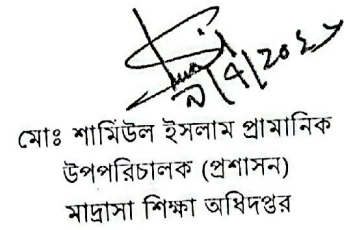 মোঃ শামিউল ইসলাম প্রামানিক
উপপরিচালক (প্রশাসন)
মাদ্রাসা শিক্ষা অধিদপ্তর